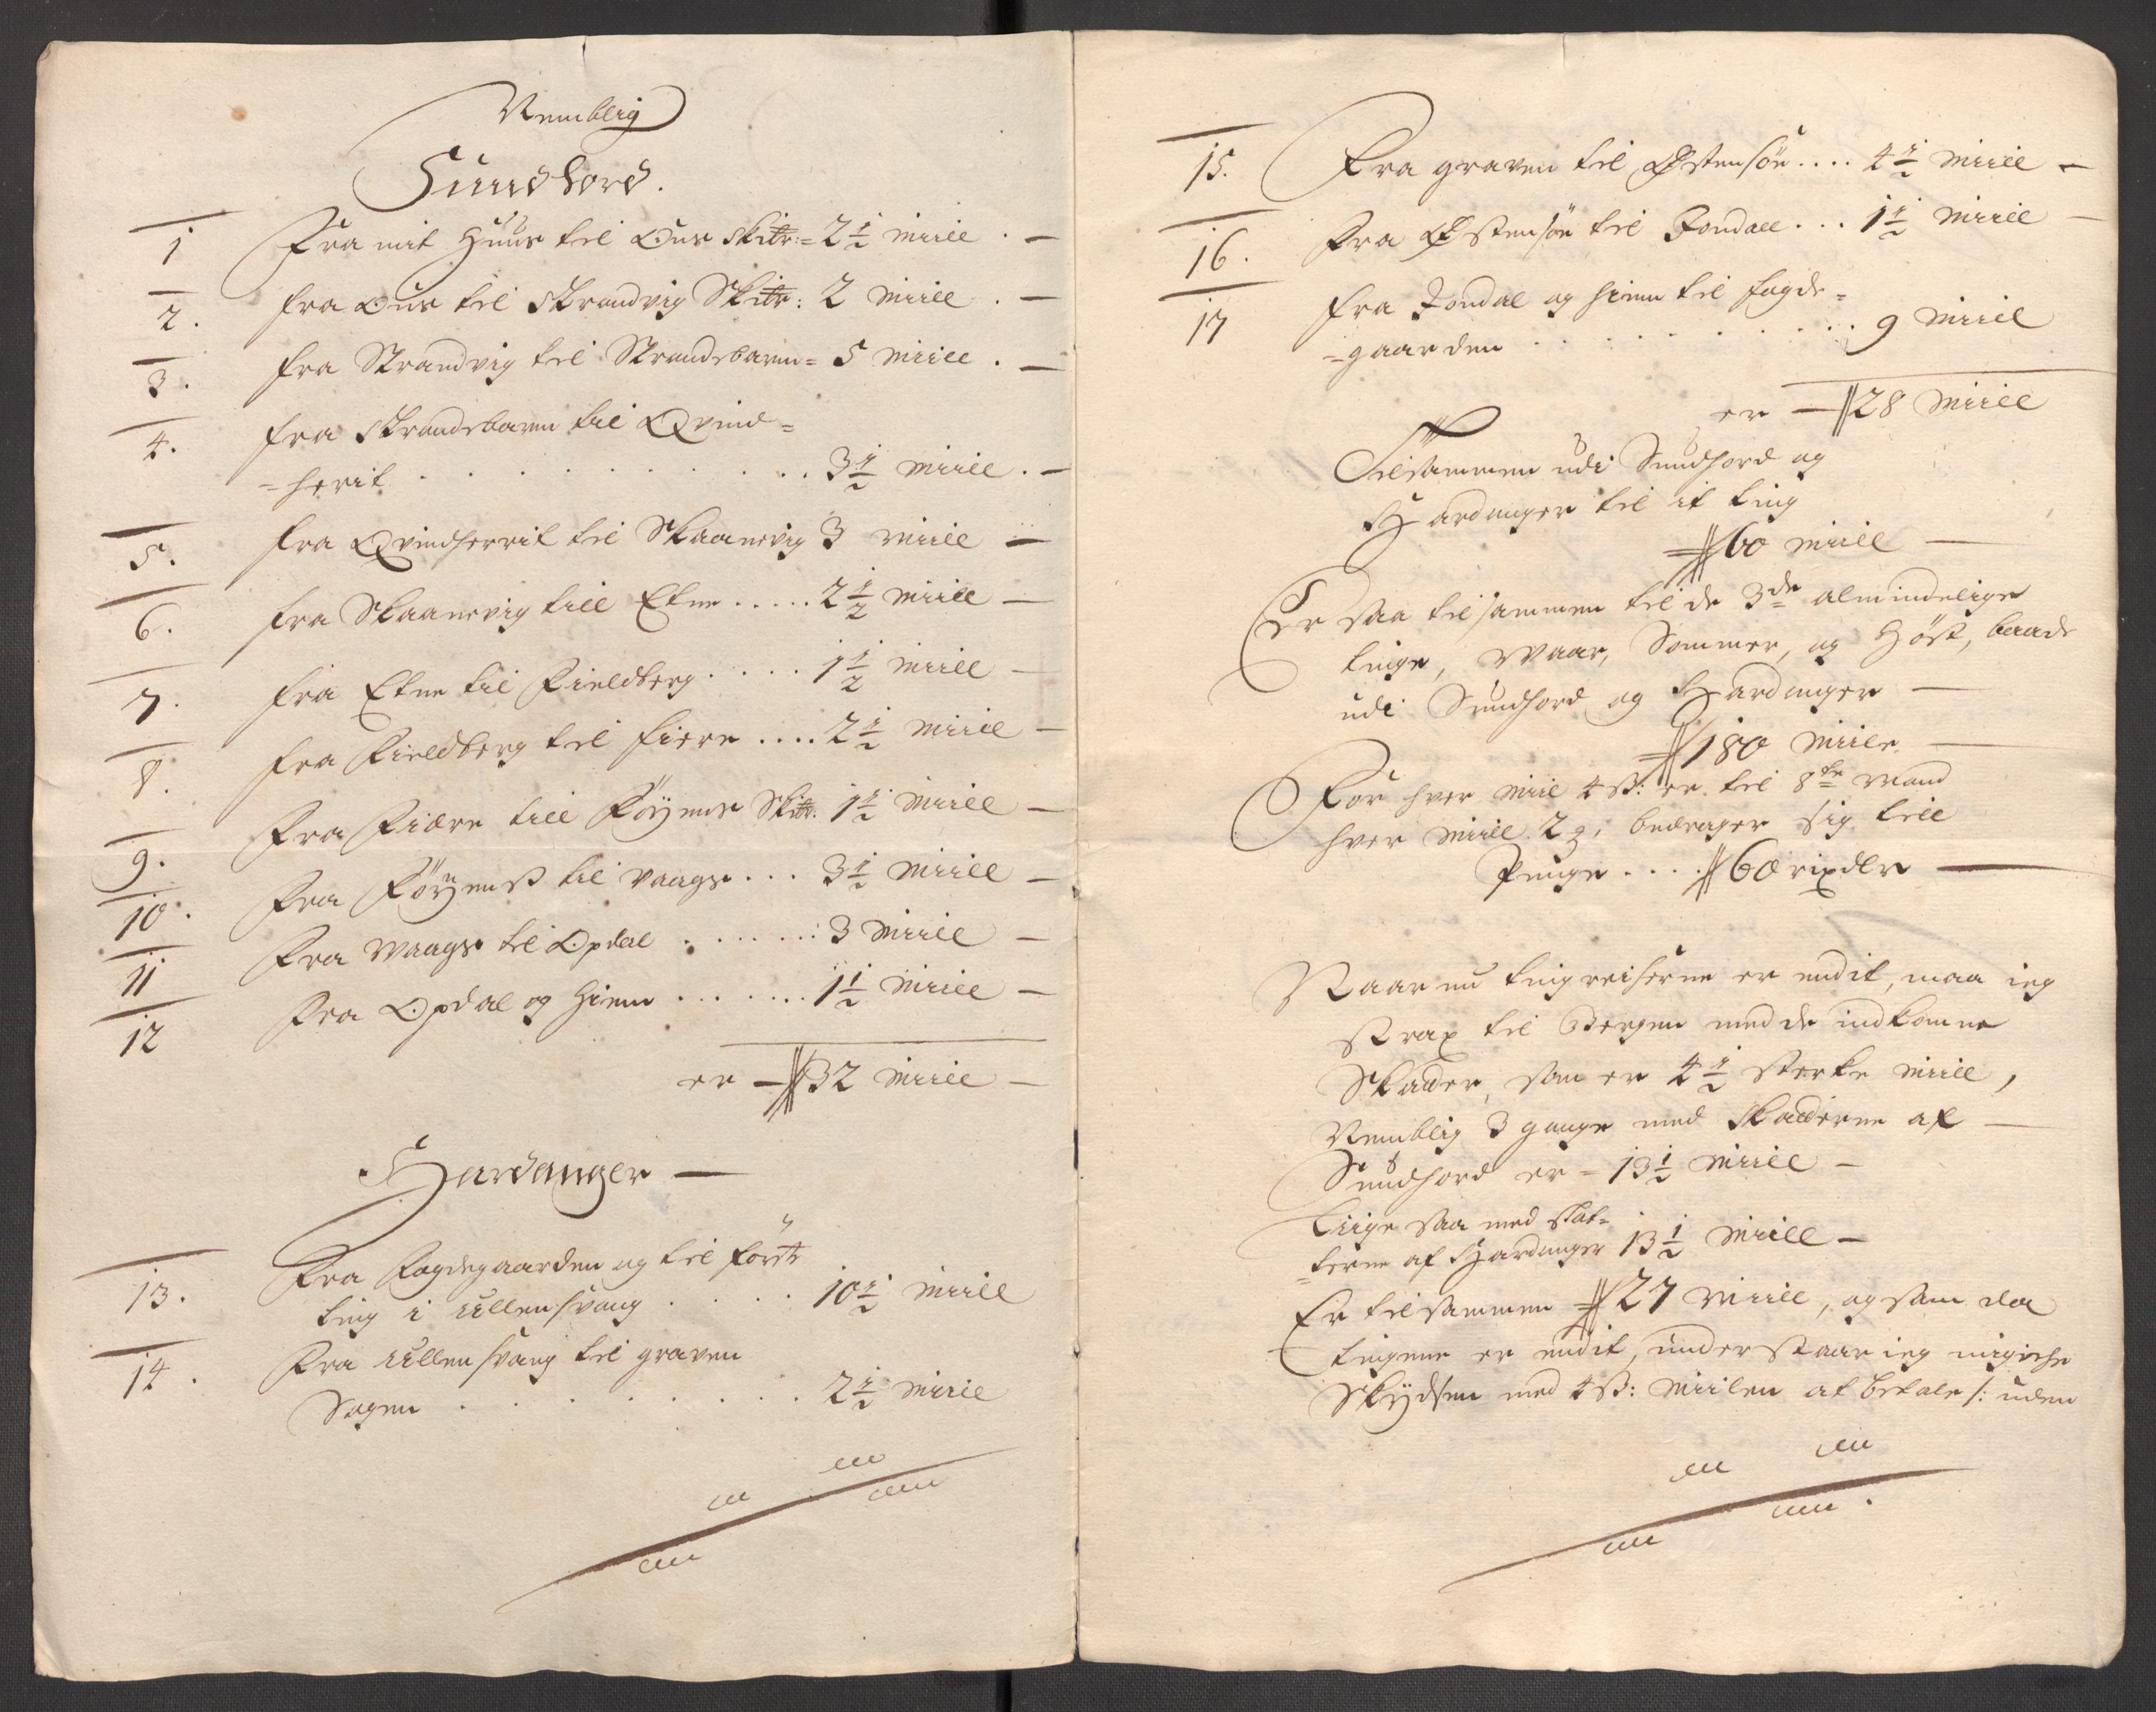 Nemblig
Sundhord.
1 Fra mit Huus til Ous Skibr:= 2½ Miill . —
2. fra Ous til Strandvig Skibr: 2 Miill . —
3. fra Strandvig til Strandebarm= 5 Miill . —
4. fra Strandebarm til Qvind=
=herit . . . . . . . . . . 3½ Miill . —
5. fra Qvindherrit til Skaanevig 3 Miill —
6. fra Skaanevig till Etne ..... 2½ Miill —
7. fra Etne til Fieldberg ..... 1½ Miill —
8. fra Fieldberg til fiere .... 2½ Miill —
9. Fra Fiære till Föyens Skibr. 1½ Miill —
10. Fra Föyenß til Vaage ... 3½ Miill —
11 Fra Waage til Opdal . . . . . . 3 Miill —
12 Fra Opdal og Hiem . . . . . . . 1½ Miill —
er — 32 Miill —
Hardanger —
13. Fra Fogdegaarden og til förste
ting i Ullensvang . . . . 10½ Miill
14. Fra Ullensvang til graven
Sogen . . . . . . . . 2½ Miill
15. Fra graven til Östensöe .... 4½ Miill —
16. Fra Östensöe til Jondall ... 1½ Miill —
17 fra Jondal og hiem til fogde=
=gaarden . . . . . . . . . 9 Miill
er — 28 Miill
Tilsammen udi Sundhord og
Hardanger til it ting
60 Miill —
Er saa tilsammen til de 3de almindelige
tinge, Waar, Sommer, og Höst, baade
udi Sundhord og Hardanger —
180 Miile —
For hver Miil 4 ß: er til 8te Mand
hver Miill 2 , bedrager sig till
Penge .... 60 rixdlr —
Naar nu tingreiserne er endit, maa ieg
strax til Bergen med de indkomne
Skatter, som er 4½ sterke Miill,
Nemblig 3 gange med Skatterne af —
Sundhord er = 13½ Miill —
Liige saa med skat=
=terne af Hardanger 13½ Miill —
Er tilsammen 27 Miill, og som da
tingene er endit, understaar ieg mig iche
Skydsen med 4 ß: Miilen at betale /: uden